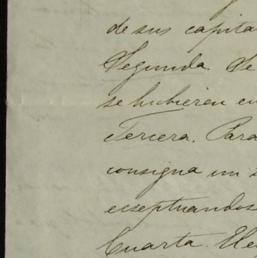 de sus capita
Segunda. Se
se hubieren en
Tercera. Para
consigna un
esceptuandos
Cuarta. Ele